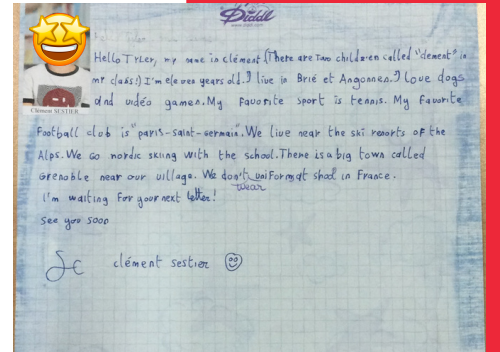 Diddl
www.diddl.com
Hello Tyler, my name in clément (There are two children called "clement" in
my class!) I'm eleves years old. I live in Brié et Angonnes. I love dogs
and vidéo games. My favorite sport is tennis. My favorite
football club is "paris-saint-germain". We live near the ski resorts of the
Alps. We go nordic skiing with the school. There is a big town called
Grenoble near our village. We don't uniform at shool in France.
wear
I'm waiting for your next letter!
see you soon
clément sestier
Clément SESTIER